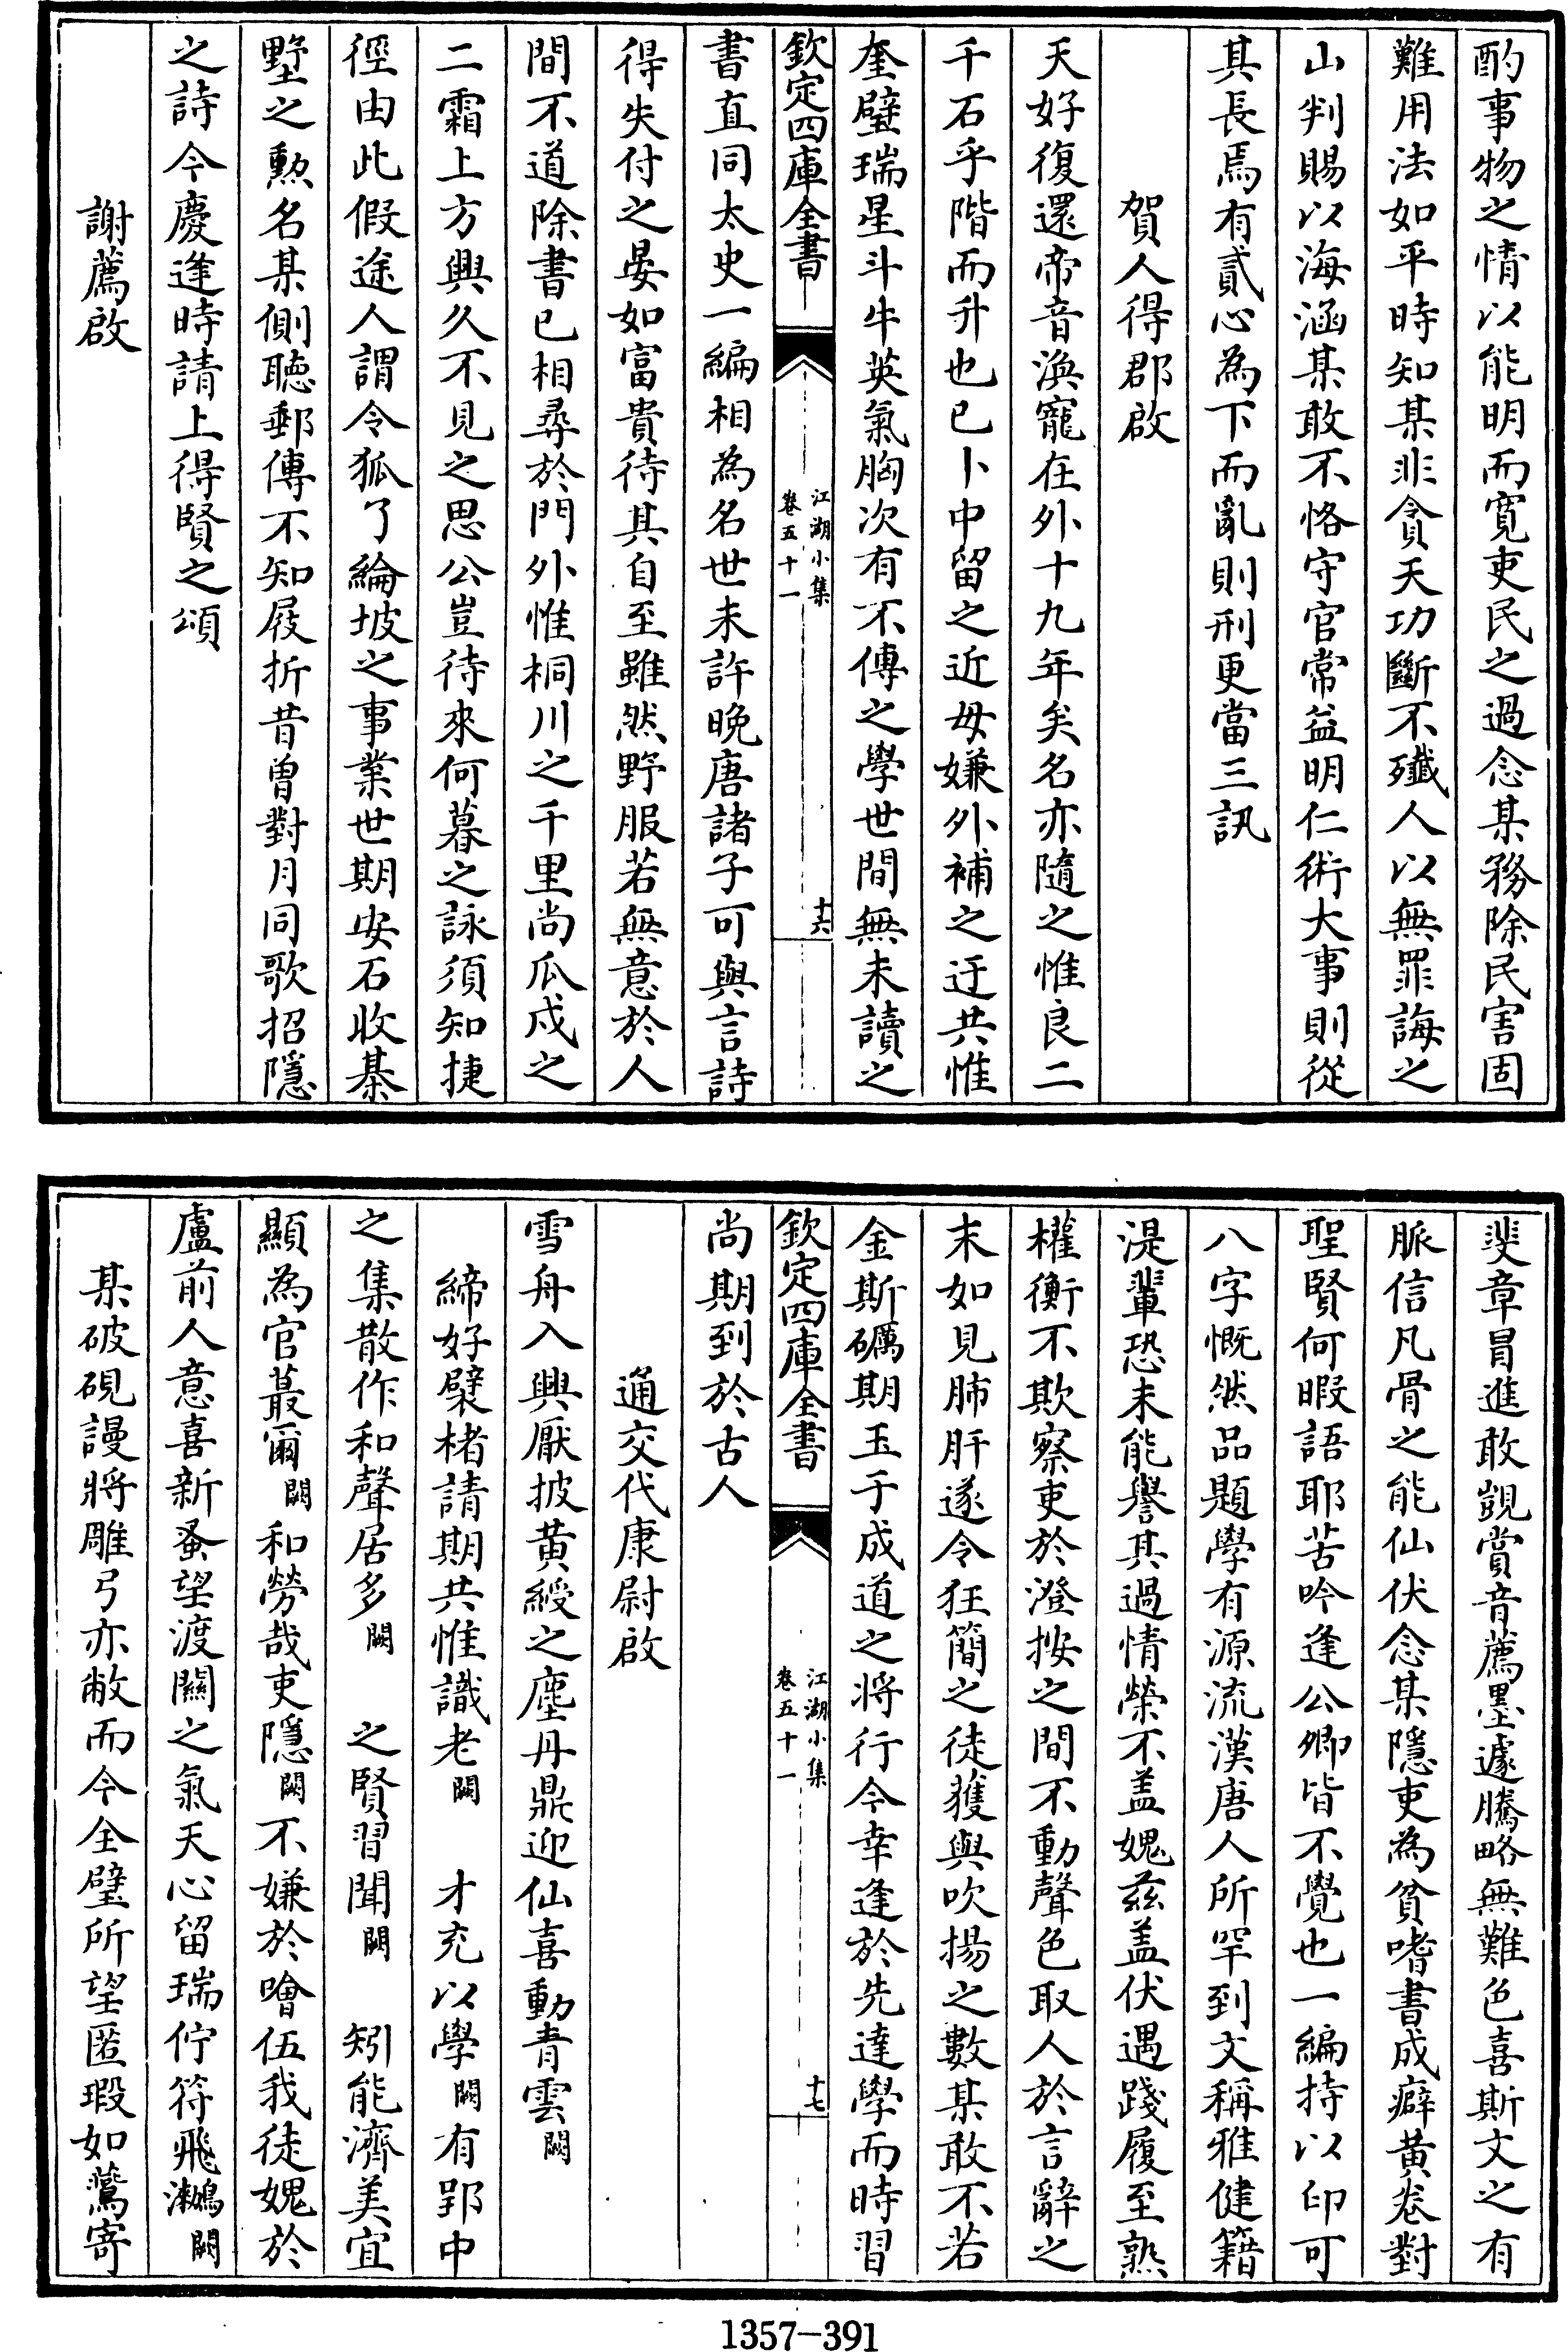 酌事物之情以能明而寬吏民之過念某務除民害固
難用法如平時知某非貪天功斷不殱人以無罪誨之
山判賜以海涵某敢不恪守官常益明仁術大事則從
其長焉有貳心為下而亂則刑更當三訊
賀人得郡啟
天好復還帝音渙寵在外十九年矣名亦隨之惟良二
千石乎階而升也已卜中留之近毋嫌外補之迂共惟
奎璧瑞星斗牛英氣胸次有不傳之學世間無未讀之
欽定四庫全書
江湖小集
卷五十一
十六
書直同太史一編相為名世未許晚唐諸子可與言詩
得失付之晏如富貴待其自至雖然野服若無意於人
間不道除書已相尋於門外惟桐川之千里尚瓜戍之
二霜上方興久不見之思公豈待來何暮之詠須知捷
徑由此假途人謂令狐了綸坡之事業世期安石收棊
墅之勲名某側聴郵傳不知屐折昔曽對月同歌招隠
之詩今慶逢時請上得賢之頌
謝薦啟
斐章冒進敢覬賞音薦墨遽騰略無難色喜斯文之有
脈信凡骨之能仙伏念某隠吏為貧嗜書成癖黄卷對
聖賢何暇語耶苦吟逢公卿皆不覺也一編持以印可
八字慨然品題學有源流漢唐人所罕到文稱雅健籍
湜輩恐未能譽其過情榮不盖媿兹盖伏遇踐履至熟
權衡不欺察吏於澄按之間不動聲色取人於言辭之
末如見肺肝遂令狂簡之徒獲與吹揚之數某敢不若
金斯礪期玉于成道之將行今幸逢於先達學而時習
欽定四庫全書
江湖小集
卷五十一
十七
尚期到於古人
通交代康尉啟
雪舟入興厭披黄綬之塵丹鼎迎仙喜動青雲闕
締好襞楮請期共惟識老闕 才充以學闕有郢中
之集散作和聲居多闕 之賢習聞闕 矧能濟美宜
顯為官蕞爾闕和勞哉吏隠闕不嫌於噲伍我徒媿於
盧前人意喜新蚤望渡關之氣天心留瑞佇符飛鸂闕
某破硯謾將雕弓亦敝而今全璧所望匿瑕如鶯寄
1357—391